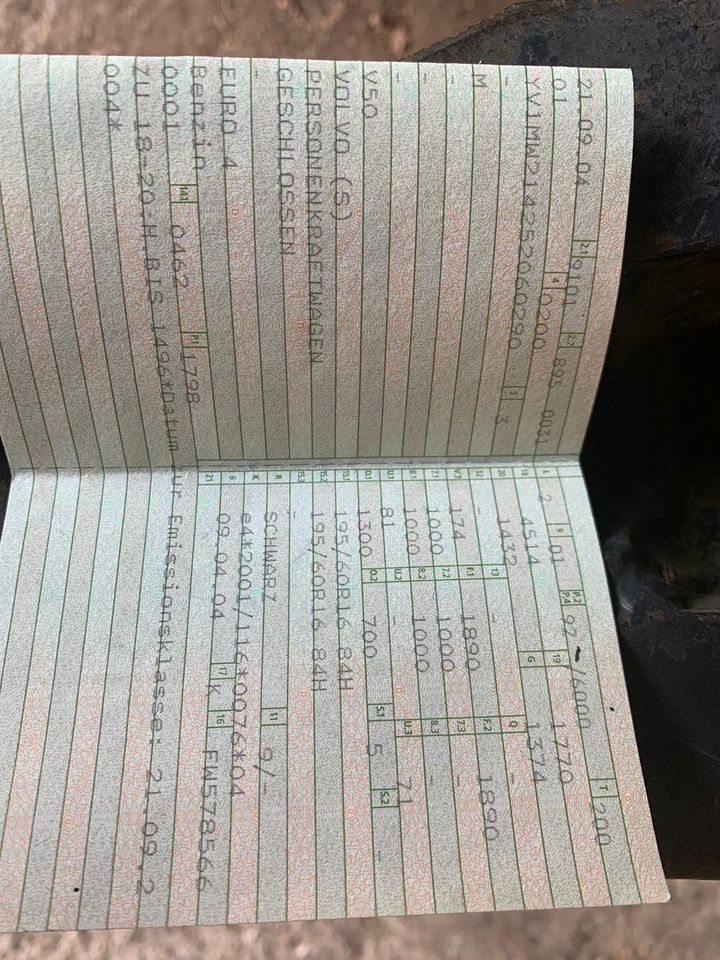 21 09 04 2.1 9101 2.2 895 0031
01 4 0200
YV1MW214252060290 3 3
-
M
-
-
-
V50
VOLVO (S)
PERSONENKRAFTWAGEN
GESCHLOSSEN
-
EURO 4
Benzin 14.1 0462 P.1 1798
0001
L 2 9 01 P.2 P.4 92 /6000 T 200
18 4514 19 1770
20 1432 G 1374
12 - 13 - Q -
V.7 174 F.1 1890 F.2 1890
7.1 1000 7.2 1000 7.3 -
8.1 1000 8.2 1000 8.3 -
U.1 81 U.2 - U.3 71
O.1 1300 O.2 700 S.1 5 S.2 -
15.1 195/60R16 84H
15.2 195/60R16 84H
15.3 -
R SCHWARZ 11 9/-
K e4*2001/116*0076*04
6 09 04 04 17 K 16 FW578566
21
ZU 18-20:H.BIS 1496*Datum zur Emissionsklasse: 21.09.2
004*